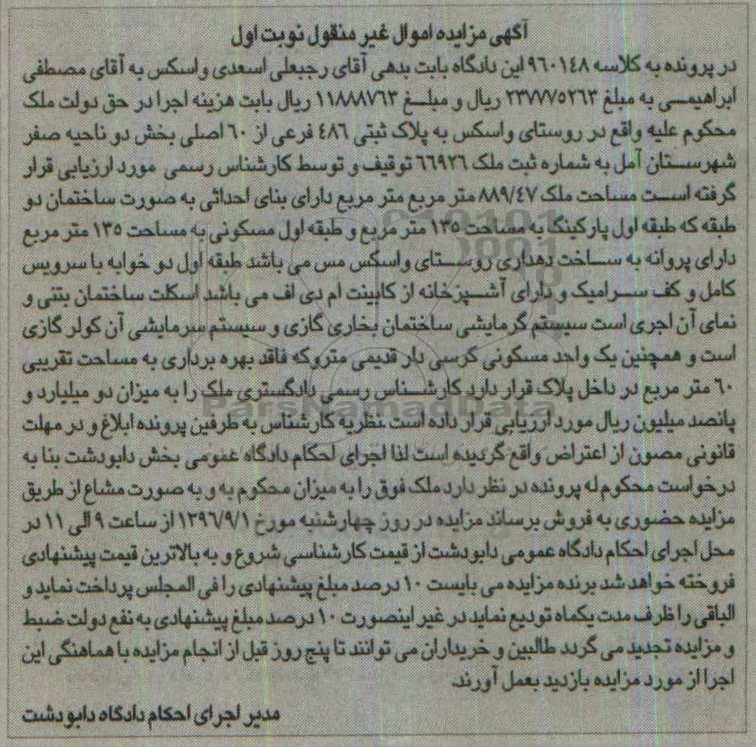 آگهی مزایده اموال غیر منقول نوبت اول
در پرونده به کلاسه ۹۶۰۱۴۸ این دادگاه بابت بدهی آقای رجبعلی اسعدی واسکس به آقای مصطفی
ابراهیمی به مبلغ ۲۳۷۷۷۵۲۶۳ ریال و مبلغ ۱۱۸۸۸۷۶۳ ریال بابت هزینه اجرا در حق دولت ملک
محکوم علیه واقع در روستای واسکس به پلاک ثبتی ۴۸۶ فرعی از ۶۰ اصلی بخش دو ناحیه صفر
شهرستان آمل به شماره ثبت ملک ۶۶۹۲۶ توقیف و توسط کارشناس رسمی مورد ارزیابی قرار
گرفته است مساحت ملک ۸۸۹/۴۷ متر مربع متر مربع دارای بنای احداثی به صورت ساختمان دو
طبقه که طبقه اول پارکینگ به مساحت ۱۳۵ متر مربع و طبقه اول مسکونی به مساحت ۱۳۵ متر مربع
دارای پروانه به ساخت دهداری روستای واسکس مس می باشد طبقه اول دو خوابه با سرویس
کامل و کف سرامیک و دارای آشپزخانه از کابینت ام دی اف می باشد اسکلت ساختمان بتنی و
نمای آن اجری است سیستم گرمایشی ساختمان بخاری گازی و سیستم سرمایشی آن کولر گازی
است و همچنین یک واحد مسکونی کرسی دار قدیمی متروکه فاقد بهره برداری به مساحت تقریبی
۶۰ متر مربع در داخل پلاک قرار دارد کارشناس رسمی دادگستری ملک را به میزان دو میلیارد و
پانصد میلیون ریال مورد ارزیابی قرار داده است نظریه کارشناس به طرفین پرونده ابلاغ و در مهلت
قانونی مصون از اعتراض واقع گردیده است لذا اجرای احکام دادگاه عمومی بخش دابودشت بنا به
درخواست محکوم له پرونده در نظر دارد ملک فوق را به میزان محکوم به و به صورت مشاع از طریق
مزایده حضوری به فروش برساند مزایده در روز چهارشنبه مورخ ۱۳۹۶/۹/۱ از ساعت ۹ الی ۱۱ در
محل اجرای احکام دادگاه عمومی دابودشت از قیمت کارشناسی شروع و به بالاترین قیمت پیشنهادی
فروخته خواهد شد برنده مزایده می بایست ۱۰ درصد مبلغ پیشنهادی را فی المجلس پرداخت نماید و
الباقی را ظرف مدت یکماه تودیع نماید در غیر اینصورت ۱۰ درصد مبلغ پیشنهادی به نفع دولت ضبط
و مزایده تجدید می گردد طالبین و خریداران می توانند تا پنج روز قبل از انجام مزایده با هماهنگی این
اجرا از مورد مزایده بازدید بعمل آورند.
مدیر اجرای احکام دادگاه دابودشت
ParsNamadData